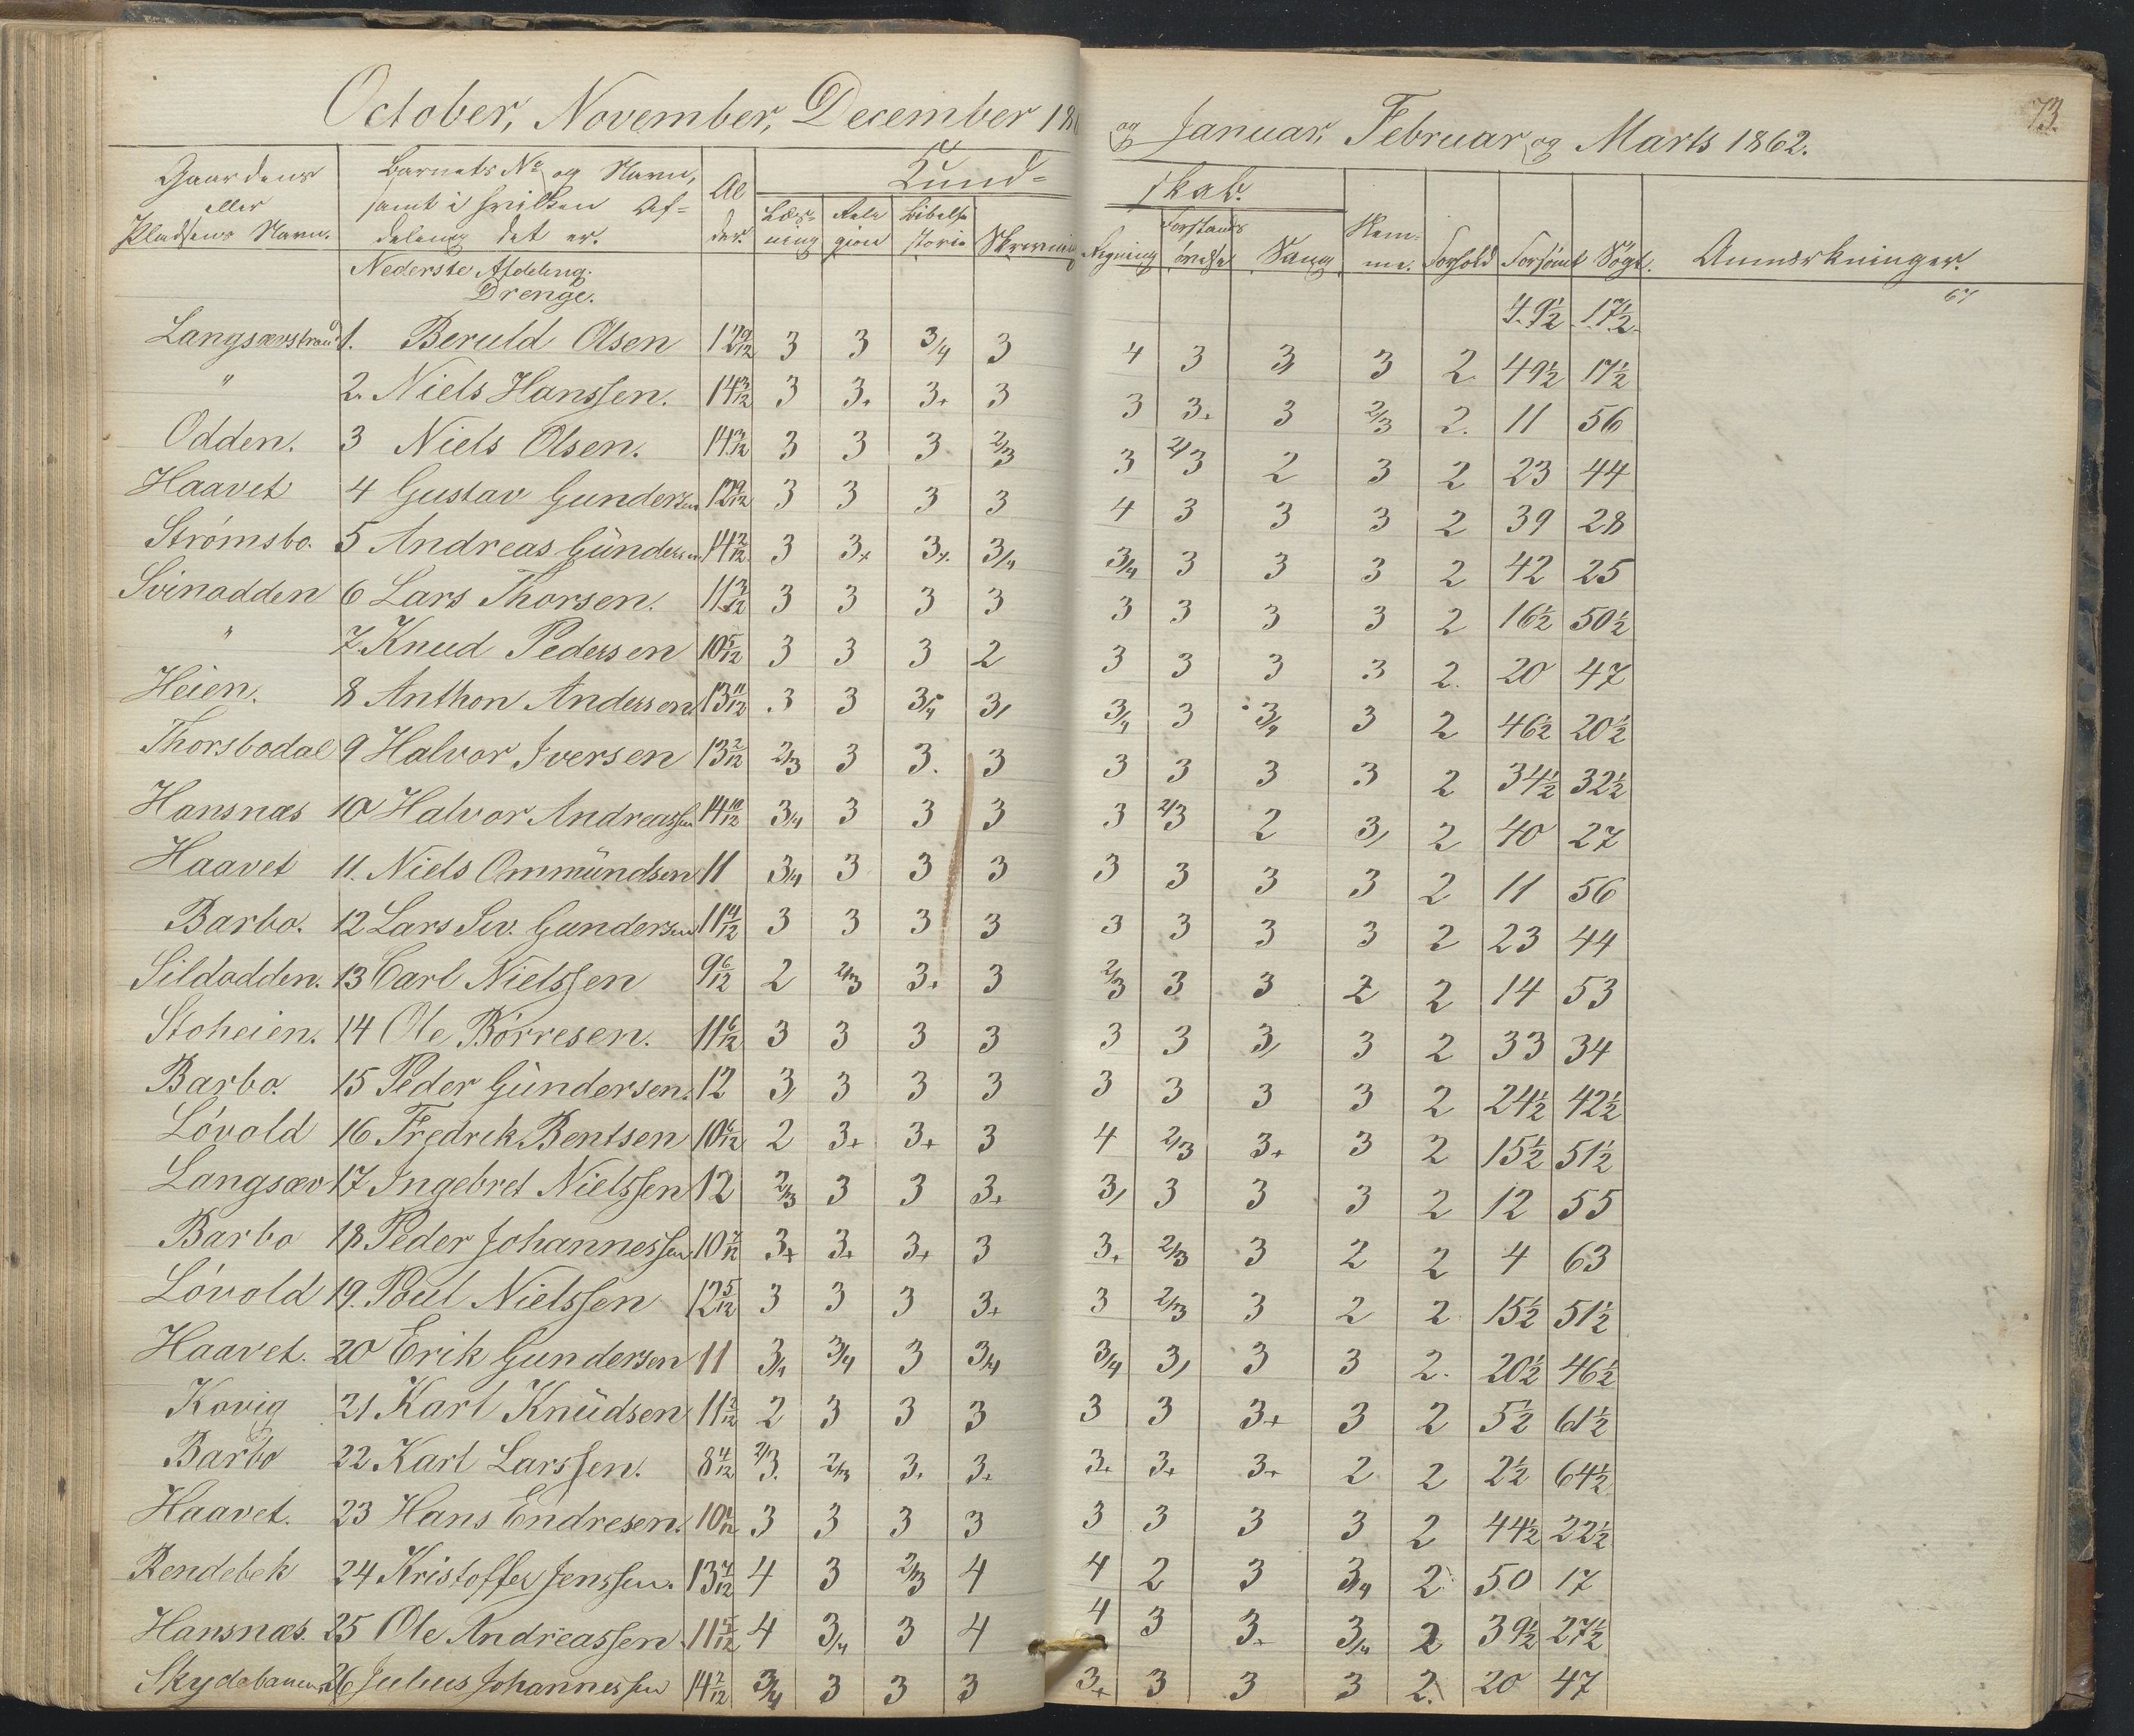 October, November, December 18
og Januar, Februar og Marts 1862.
73.
Gaardens eller Pladsens Navn. | Barnets No og Navn, samt i hvilken Afdeling det er. | Alder. | Kundskab. | Læsning | Religion | Bibelhistorie | Skrivning | Regning | Forstandsøvelse | Sang | Nemme. | Forhold | Forsømt | Søgt. | Anmærkninger.
Nederste Afdeling.
Drenge. | 49½ | 17½ | 67
Langsævstrand | 1. Beruld Olsen | 12 9/12 | 3 | 3 | 3/4 | 3 | 4 | 3 | 3, | 3 | 2 | 49½ | 17½
" | 2. Niels Hanssen. | 14 3/12 | 3 | 3+ | 3+ | 3 | 3 | 3+ | 3 | 2/3 | 2. | 11 | 56
Odden. | 3 Niels Olsen. | 14 3/12 | 3 | 3 | 3 | 2/3 | 3 | 2/3 | 2 | 3 | 2 | 23 | 44
Haavet | 4 Gustav Gundersen | 12 9/12 | 3 | 3 | 3 | 3 | 4 | 3 | 3 | 3 | 2 | 39 | 28
Strømsbo. | 5 Andreas Gündersen | 14 2/12 | 3 | 3+ | 3+ | 3/4 | 3/4 | 3 | 3 | 3 | 2 | 42 | 25
Svinodden | 6 Lars Thorsen. | 11 3/12 | 3 | 3 | 3 | 3 | 3 | 3 | 3 | 3 | 2 | 16½ | 50½
" | 7. Knud Pedersen | 10 5/12 | 3 | 3 | 3 | 2 | 3 | 3 | 3 | 3 | 2. | 20 | 47
Heien. | 8 Anthon Andersen | 13 11/12 | 3 | 3 | 3/4 | 3, | 3/4 | 3 | 3/4 | 3 | 2 | 46½ | 20½
Thorsbodal | 9 Halvor Iversen | 13 2/12 | 2/3 | 3 | 3. | 3 | 3 | 3 | 3 | 3 | 2 | 34½ | 32½
Hansnæs | 10 Halvor Andreassen | 14 10/12 | 3/4 | 3 | 3 | 3 | 3 | 2/3 | 2 | 3, | 2 | 40 | 27
Haavet | 11. Niels Ommündsen | 11 | 3/4 | 3 | 3 | 3 | 3 | 3 | 3 | 3 | 2 | 11 | 56
Barbo. | 12 Lars Sev. Gundersen | 11 4/12 | 3 | 3 | 3 | 3 | 3 | 3 | 3 | 3 | 2 | 23 | 44
Sildodden. | 13 Carl Nielssen | 9 6/12 | 2 | 2/3 | 3+ | 3 | 2/3 | 3 | 3 | 2 | 2 | 14 | 53
Stoheien. | 14 Ole Børresen. | 11 6/12 | 3 | 3 | 3 | 3 | 3 | 3 | 3, | 3 | 2 | 33 | 34
Barbo. | 15 Peder Gündersen. | 12 | 3, | 3 | 3 | 3 | 3 | 3 | 3 | 3 | 2 | 24½ | 42½
Løvold | 16 Fredrik Bentsen | 10 6/12 | 2 | 3+ | 3+ | 3 | 4 | 2/3 | 3+ | 3 | 2 | 15½ | 51½
Langsæv | 17 Ingebret Nielssen | 12 | 2/3 | 3 | 3 | 3+ | 3, | 3 | 3 | 3 | 2 | 12 | 55
Barbo | 18 Peder Johannessen | 10 7/12 | 3+ | 3+ | 3+ | 3 | 3+ | 2/3 | 3 | 2 | 2 | 4 | 63
Løvold | 19. Poul Nielssen | 12 5/12 | 3 | 3 | 3 | 3+ | 3 | 2/3 | 3 | 2 | 2 | 15½ | 51½
Haavet. | 20 Erik Gundersen | 11 | 3/4 | 3/4 | 3 | 3/4 | 3/4 | 3, | 3 | 3 | 2. | 20½ | 46½
Kovig | 21 Karl Knüdsen | 11 2/12 | 2 | 3 | 3 | 3 | 3 | 3 | 3+ | 3 | 2 | 5½ | 61½
Barbo | 22 Karl Larssen. | 8 4/12 | 2/3. | 2/3 | 3+ | 3+ | 3+ | 3+ | 3+ | 2 | 2 | 2½ | 64½
Haavet. | 23 Hans Endresen. | 10 6/12 | 3 | 3 | 3 | 3 | 3 | 3 | 3 | 3 | 2 | 44½ | 22½
Rendebek | 24 Kristoffer Jenssen. | 13 7/12 | 4 | 3 | 2/3 | 4 | 4 | 2 | 3 | 3/4 | 2 | 50 | 17
Hansnæs. | 25 Ole Andreassen. | 11 5/12 | 4 | 3/4 | 3 | 4 | 4 | 3 | 3+ | 3/4 | 2 | 39½ | 27½
Skydebanen | 26 Julius Johannessen | 14 2/12 | 3/4 | 3 | 3 | 3 | 3+ | 3 | 3 | 3 | 2. | 20 | 47